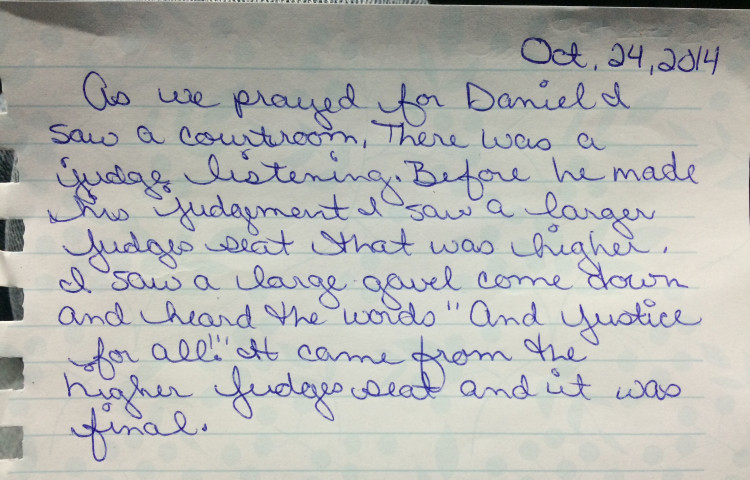 Oct. 24, 2014
As we prayed for Daniel I
saw a courtroom. There was a
judge listening. Before he made
his judgement I saw a larger
judges seat that was higher.
I saw a large gavel come down
and heard the words "And justice
for all!" It came from the
higher judges seat and it was
final.